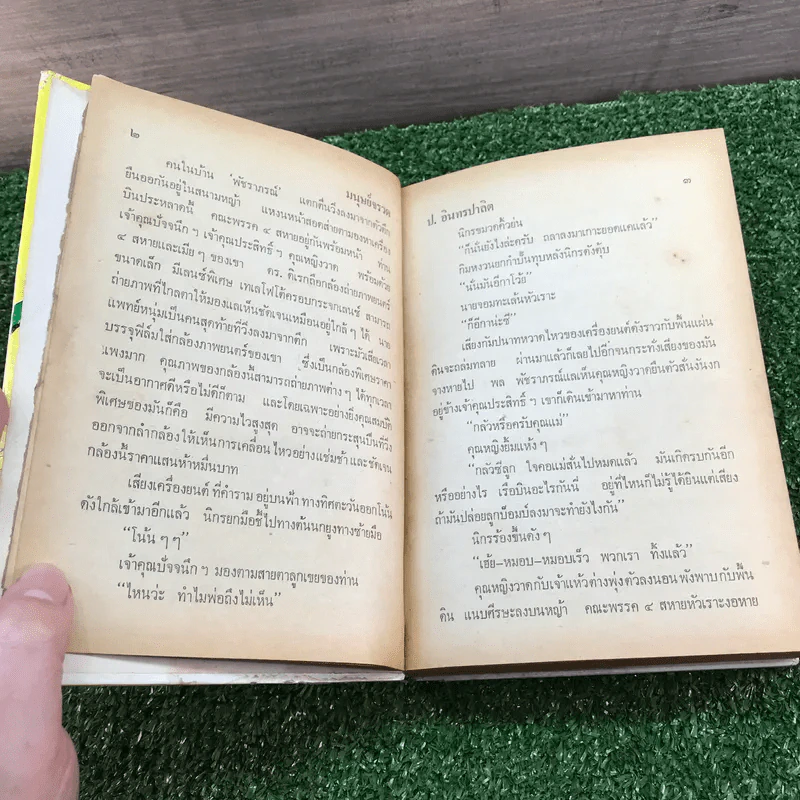 ๒
มนุษย์จรวด
คนในบ้าน ‘พัชราภรณ์’ แตกตื่นวิ่งลงมาจากตัวตึก
ยืนออกันอยู่ในสนามหญ้า แหงนหน้าสอดส่ายตามองหาเครื่อง
บินประหลาดนี้ คณะพรรค ๔ สหายอยู่กันพร้อมหน้า ท่าน
เจ้าคุณปัจจนึก ฯ เจ้าคุณประสิทธิ์ ฯ คุณหญิงวาด พร้อมด้วย
๔ สหายและเมีย ๆ ของเขา ดร. ดิเรกถือกล้องถ่ายภาพยนตร์
ขนาดเล็ก มีเลนซ์พิเศษ เทเลโฟโต้ครอบกระจกเลนซ์ สามารถ
ถ่ายภาพที่ไกลตาให้มองแลเห็นชัดเจนเหมือนอยู่ใกล้ ๆ ได้ นาย
แพทย์หนุ่มเป็นคนสุดท้ายที่วิ่งลงมาจากตึก เพราะมัวเสียเวลา
บรรจุฟีล์มใส่กล้องภาพยนตร์ของเขา ซึ่งเป็นกล้องพิเศษราคา
แพงมาก คุณภาพของกล้องนี้สามารถถ่ายภาพต่าง ๆ ได้ทุกเวลา
จะเป็นอากาศดีหรือไม่ดีก็ตาม และโดยเฉพาะอย่างยิ่งคุณสมบัติ
พิเศษของมันก็คือ มีความไวสูงสุด อาจจะถ่ายกระสุนปืนที่วิ่ง
ออกจากลำกล้องให้เห็นการเคลื่อนไหวอย่างแช่มช้า และชัดเจน
กล้องนี้ราคาแสนห้าหมื่นบาท
เสียงเครื่องยนต์ ที่คำราม อยู่บนฟ้า ทางทิศตะวันออกโน้น
ดังใกล้เข้ามาอีกแล้ว นิกรยกมือชี้ไปทางต้นนกยูงทางซ้ายมือ
“โน้น ๆ ๆ”
เจ้าคุณปัจจนึก ฯ มองตามสายตาลูกเขยของท่าน
“ไหนว่ะ ทำไมพ่อถึงไม่เห็น”
๓
ป. อินทรปาลิต
นิกรขมวดคิ้วย่น
“ก็นั่นยังไงล่ะครับ ถลาลงมาเกาะยอดแคแล้ว”
กิมหงวนยกกำปั้นทุบหลังนิกรดังคุ้บ
“นั่นมันอีกาโว้ย”
นายจอมทะเล้นหัวเราะ
“ก็อีกาน่ะซี”
เสียงอัมปนาทหวาดไหวของเครื่องยนต์ ดังราวกับพื้นแผ่น
ดินจะถล่มทลาย ผ่านมาแล้วก็เลยไปอีกจนกระทั่งเสียงของมัน
จางหายไป พล พัชราภรณ์แลเห็นคุณหญิงวาดยืนตัวสั่นงันงก
อยู่ข้างเจ้าคุณประสิทธิ์ ฯ เขาก็เดินเข้ามาหาท่าน
“กลัวหรือครับคุณแม่”
คุณหญิงยิ้มแห้ง ๆ
“กลัวซีลูก ใจคอแม่สั่นไปหมดแล้ว มันเกิดรบกันอีก
หรืออย่างไร เรือบินอะไรกันนี่ อยู่ที่ไหนก็ไม่รู้ได้ยินแต่เสียง
ถ้ามันปล่อยลูกบ็อมบ์ลงมาจะทำยังไงกัน”
นิกรร้องขึ้นดัง ๆ
“เฮ้ย-หมอบ-หมอบเร็ว พวกเรา ทิ้งแล้ว”
คุณหญิงวาดกับเจ้าแห้วต่างพุ่งตัวลงนอน พังพาบ กับพื้น
ดิน แนบศีรษะลงบนหญ้า คณะพรรค ๔ สหายหัวเราะงอหาย